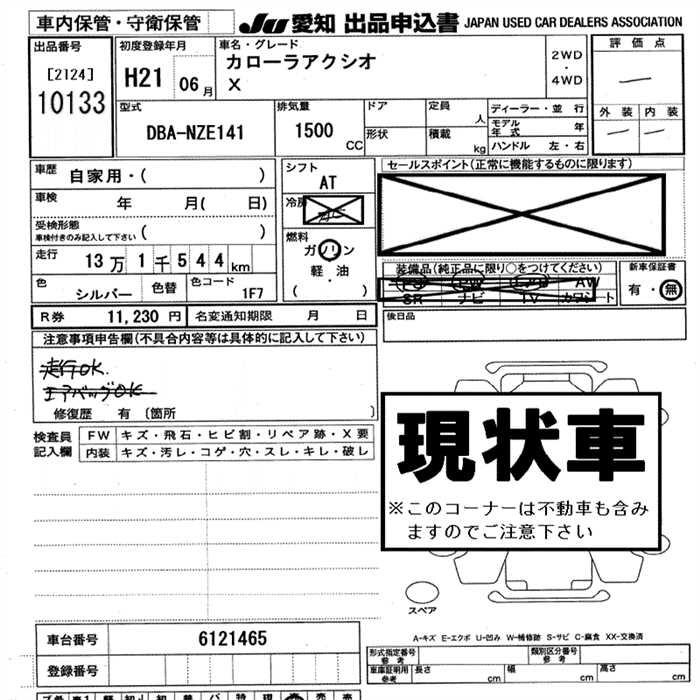 車内保管・守衛保管
JU 愛知 出品申込書 JAPAN USED CAR DEALERS ASSOCIATION
出品番号
[2124]
10133
初度登録年月
H21 06月
車名・グレード
カローラアクシオ
X
2WD
・
4WD
評価点
外装 内装
型式
DBA-NZE141
排気量
1500
CC
ドア
形状
定員
人
積載
kg
ディーラー・並行
モデル年式 年
ハンドル 左・右
車歴
自家用・( )
車検 年 月( 日)
受検形態
車検付きのみ記入して下さい ( )
走行 13万1千544km
色 シルバー
色替
色コード 1F7
シフト
AT
冷房
燃料
ガソリン
軽・油
( )
セールスポイント(正常に機能するものに限ります)
装備品(純正品に限り○をつけてください)
AW
SR ナビ TV カワシート
新車保証書
有・無
R券 11,230円
名変通知期限 月 日
後日品
注意事項申告欄(不具合内容等は具体的に記入して下さい)
走行OK.
エアバッグOK
修復歴 有 〔箇所 〕
検査員
記入欄
FW キズ・飛石・ヒビ割・リペア跡・X要
内装 キズ・汚レ・コゲ・穴・スレ・キレ・破レ
現状車
※このコーナーは不動車も含み
ますのでご注意下さい
スペア
A-キズ E-エクボ U-凹み W-補修跡 S-サビ C-腐食 XX-交換済
車台番号 6121465
登録番号
形式指定番号
参考
類別区分番号
参考
車庫証明用
参考
長さ cm
幅 cm
高さ cm